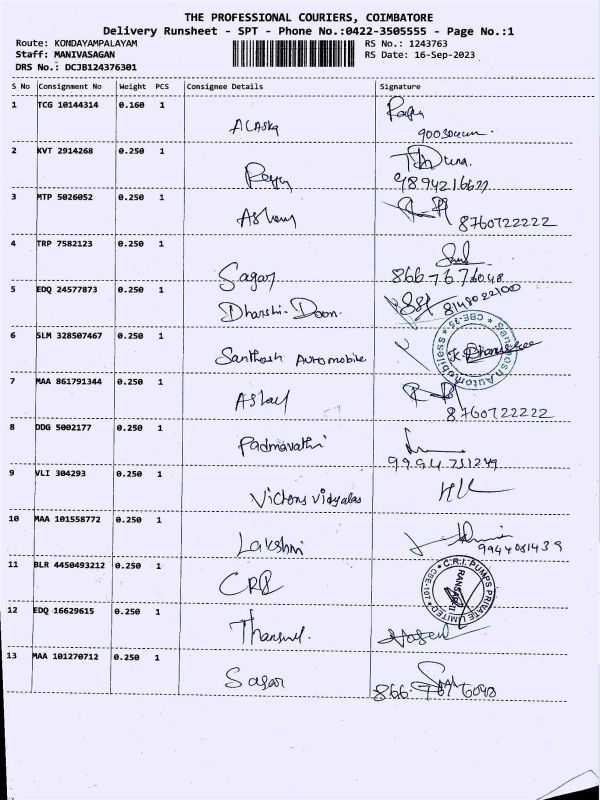 THE PROFESSIONAL COURIERS, COIMBATORE
Delivery Runsheet - SPT - Phone No.:0422-3505555 - Page No.:1
Route: KONDAYAMPALAYAM RS No.: 1243763
Staff: MANIVASAGAN RS Date: 16-Sep-2023
DRS No.: DCJB124376301
S No Consignment No Weight PCS Consignee Details Signature
1 TCG 10144314 0.160 1
Alaska
2 KVT 2914268 0.250 1
3 MTP 5026052 0.250 1
8760722222
4 TRP 7582123 0.250 1
Sagar
5 EDQ 24577873 0.250 1
Dharshi-Doon. 8148022100
6 SLM 328507467 0.250 1
Santhosh Automobile
CBE-35
7 MAA 861791344 0.250 1
8760722222
8 DDG 5002177 0.250 1
Padmavathi
9 VLI 304293 0.250 1
Victons Vidyalas
10 MAA 101558772 0.250 1
Lakshmi
11 BLR 4450493212 0.250 1
CRI
C.R.I. PUMPS PRIVATE LIMITED
CBE-107
12 EDQ 16629615 0.250 1
13 MAA 101270712 0.250 1
Sagar